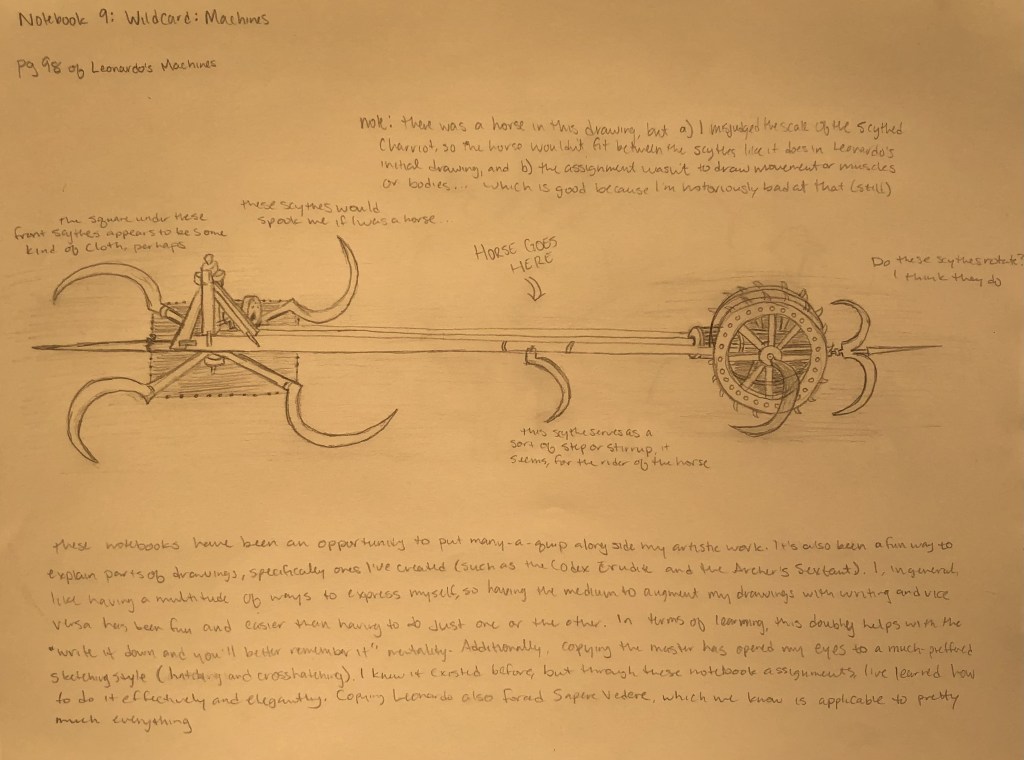 Notebook 9: Wildcard: Machines
pg 98 of Leonardo's Machines
note: there was a horse in this drawing, but a) I misjudged the scale of the scythed
charriot, so the horse wouldn't fit between the scythes like it does in Leonardo's
initial drawing, and b) the assignment wasn't to draw movement or muscles
or bodies... which is good because I'm notoriously bad at that (still)
The square under these
front scythes appears to be some
kind of cloth, perhaps
these scythes would
spook me if I was a horse...
HORSE GOES
HERE
Do these scythes rotate?
I think they do
this scythe serves as a
sort of step or stirrup, it
seems, for the rider of the horse
These notebooks have been an opportunity to put many-a-quip along side my artistic work. It's also been a fun way to
explain parts of drawings, specifically ones I've created (such as the Codex Erudite and the Archer's Sextant). I, in general,
like having a multitude of ways to express myself, so having the medium to augment my drawings with writing and vice
versa has been fun and easier than having to do just one or the other. In terms of learning, this doubly helps with the
"write it down and you'll better remember it" mentality. Additionally, copying the master has opened my eyes to a much-preferred
sketching style (hatching and crosshatching). I knew it existed before, but through these notebook assignments, I've learned how
to do it effectively and elegantly. Copying Leonardo also forced Sapere Vedere, which we know is applicable to pretty
much everything